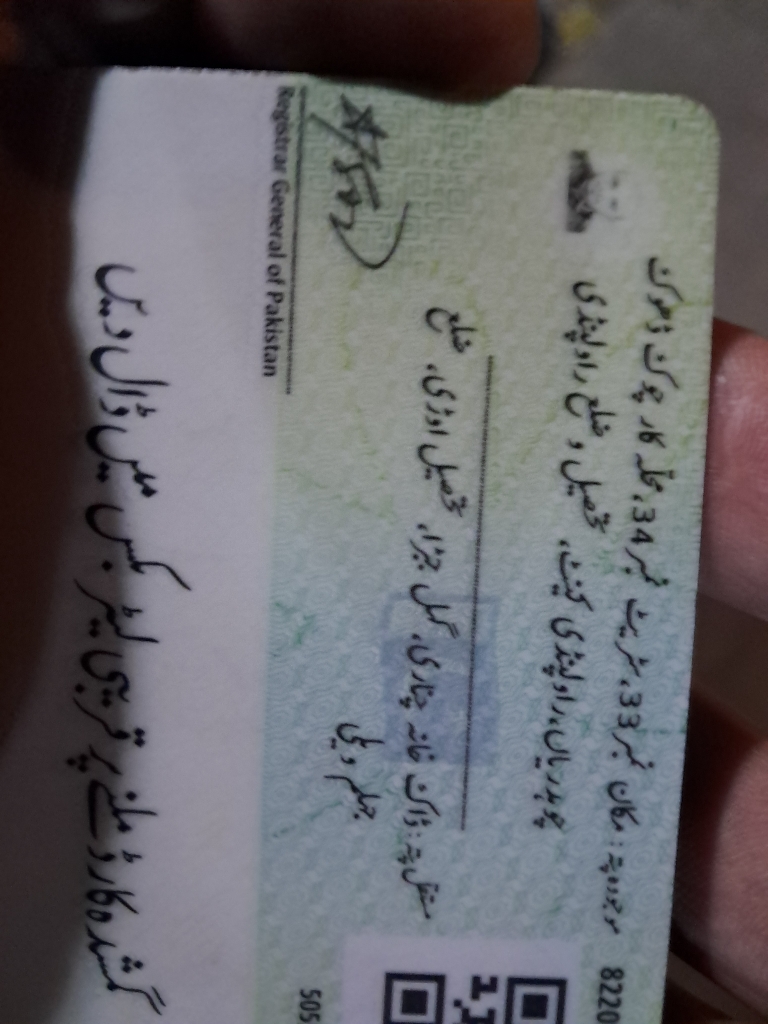 8220
موجودہ پتہ: مکان نمبر 33، سٹریٹ نمبر 34، محلہ کار چوک ڈھوک
چوہدریاں، راولپنڈی کینٹ، تحصیل و ضلع راولپنڈی
مستقل پتہ: ڈاک خانہ چناری، گہل جبڑا، تحصیل اوڑی، ضلع
جہلم ویلی
505
Registrar General of Pakistan
گمشدہ کارڈ ملنے پر قریبی لیٹر بکس میں ڈال دیں